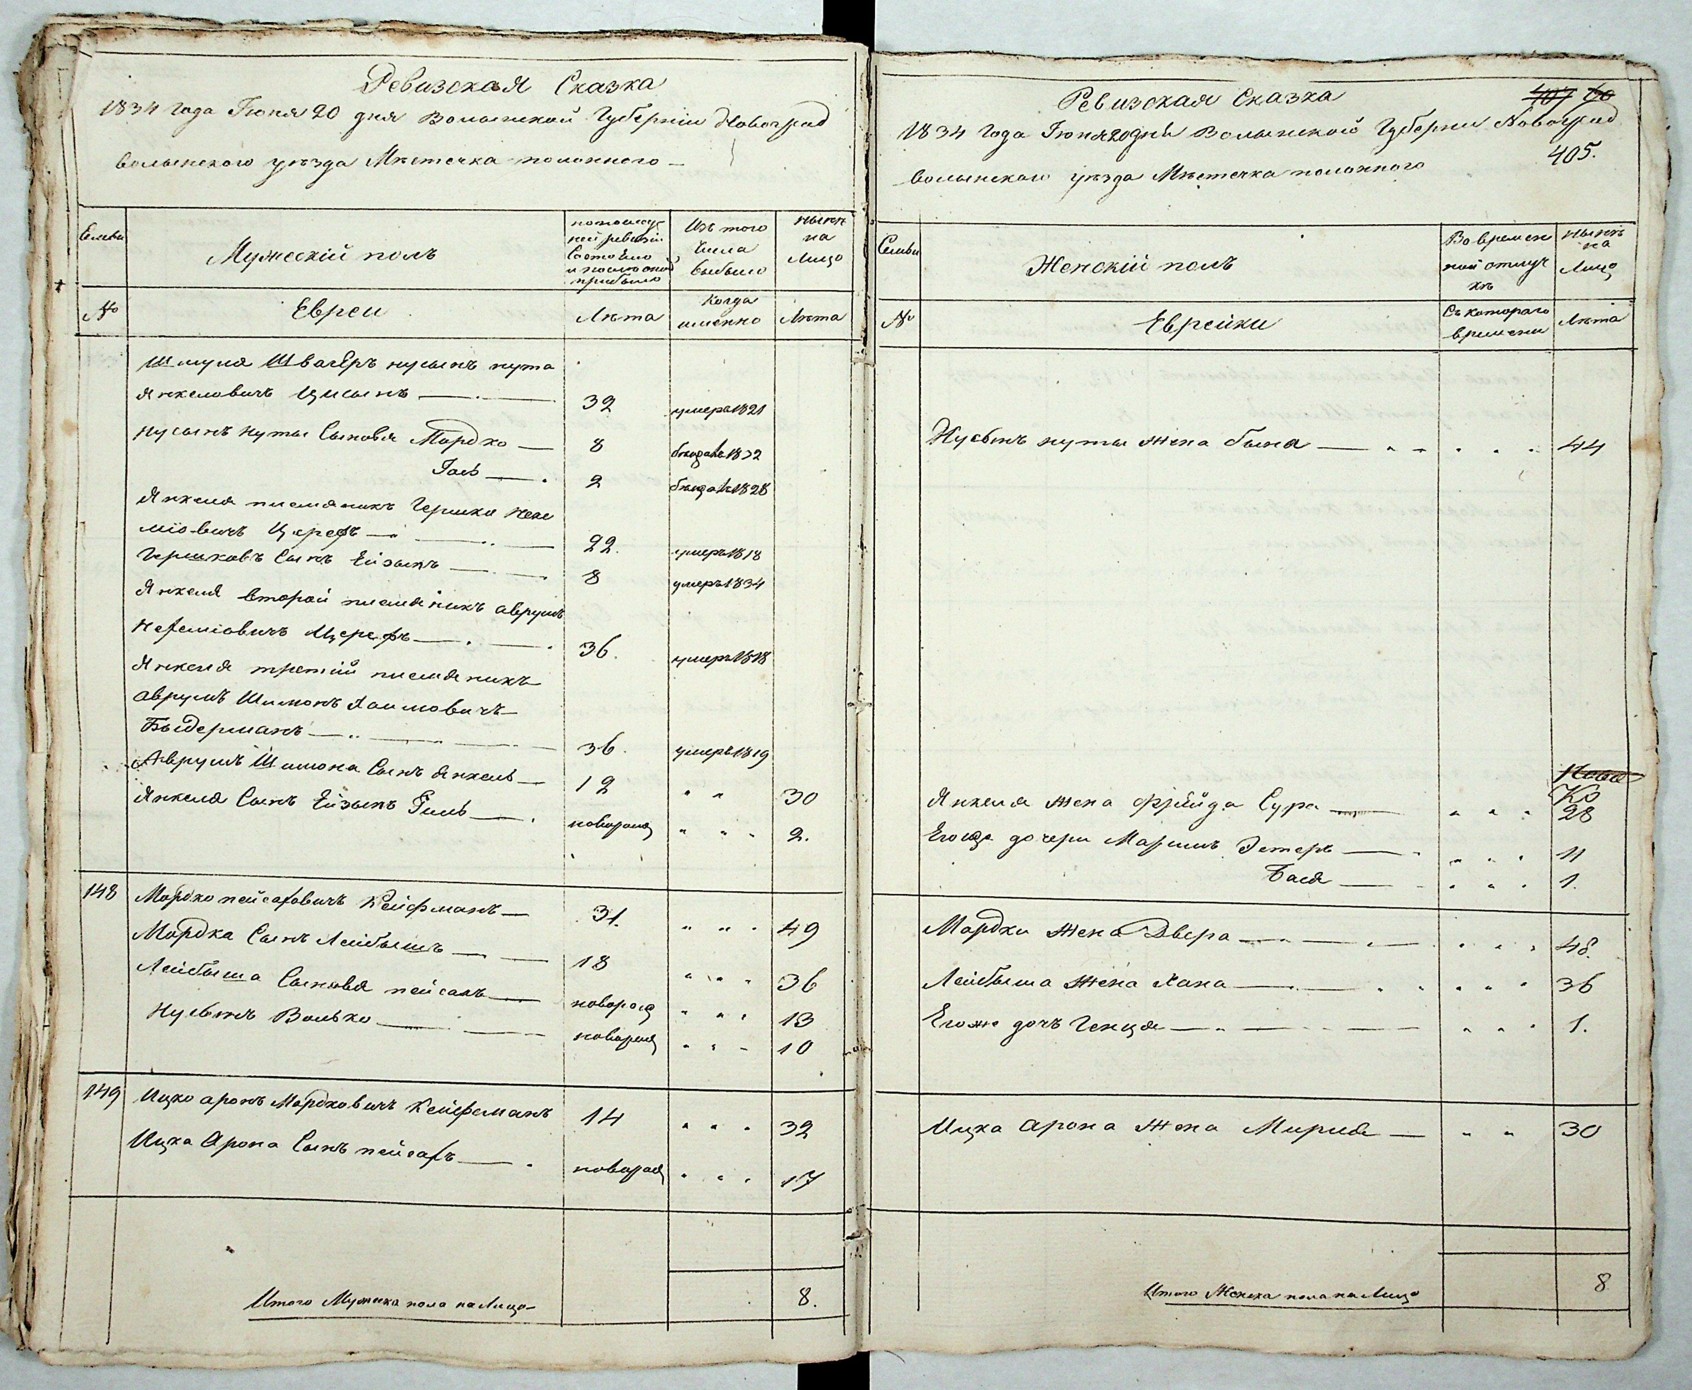 Ревизская Сказка
1834 года Іюня 20 дня Волынской Губерніи Новоград
волынского уезда Местечка полонного
Семьи
Мужескій полъ
по последней ревизіи состояло и после оной прибыло
Изъ того числа выбыло
ныне на лицо
№
Евреи
Лѣта
Когда именно
Лѣта
Шмуля Швагеръ нусынъ нута
Янкеловичъ Цысынъ 32 умеръ 1821
Нусынъ нуты Сыновя Мордко 8 1822
Гось 2 1828
Янкеля племяникъ Гершко Нехе
міовичъ Цсрефъ 22. умеръ 1818
Гершковъ Сынъ Ейзыкъ 8 умеръ 1834
Янкеля второй племяникъ аврумъ
Нехеміовичъ Щерефъ 36. умеръ 1818
Янкеля третій племяникъ
аврумъ Шимонъ Хаимовичъ
Быдерманъ 36. умеръ 1819
Аврумъ Шимона Сынъ Янкель 12 " " 30
Янкеля Сынъ Ейзыкъ Гиль новорожд " " " 2.
148 Мордко пейсаховичъ Кейфманъ 31. " " " 49
Мордка Сынъ Лейбышъ 18 " " " 36
Лейбыша Сыновя пейсахъ новорожд " " " 13
Нусынъ Волько новорожд " " " 10
149 Ицко аронъ Мордковичъ Кейфманъ 14 " " " 32
Ицка Арона Сынъ пейсахъ новорожд " " " 17
Итого Мужеска пола на Лицо 8.
Ревизская Сказка
407 60
1834 года Іюня 20 дня Волынской Губерніи Новоград
405.
волынского уезда Местечка полонного
Семьи
Женскій полъ
Во временной отлучкѣ
ныне на Лицо
№
Еврейки
Съ котораго времени
Лѣта
Нусынъ нуты жена бына " " " " " 44
Ко
Янкеля жена Фрейда Сура " " " 28
Егожъ дочери Маримъ Эстеръ " " " 11
Бася " " " 1.
Мордки жена Двера " " " 48.
Лейбыша жена Хана " " " 36
Егожъ дочь Генця " " " 1.
Ицка арона жена Мирля " " 30
Итого Женска пола на Лицо 8